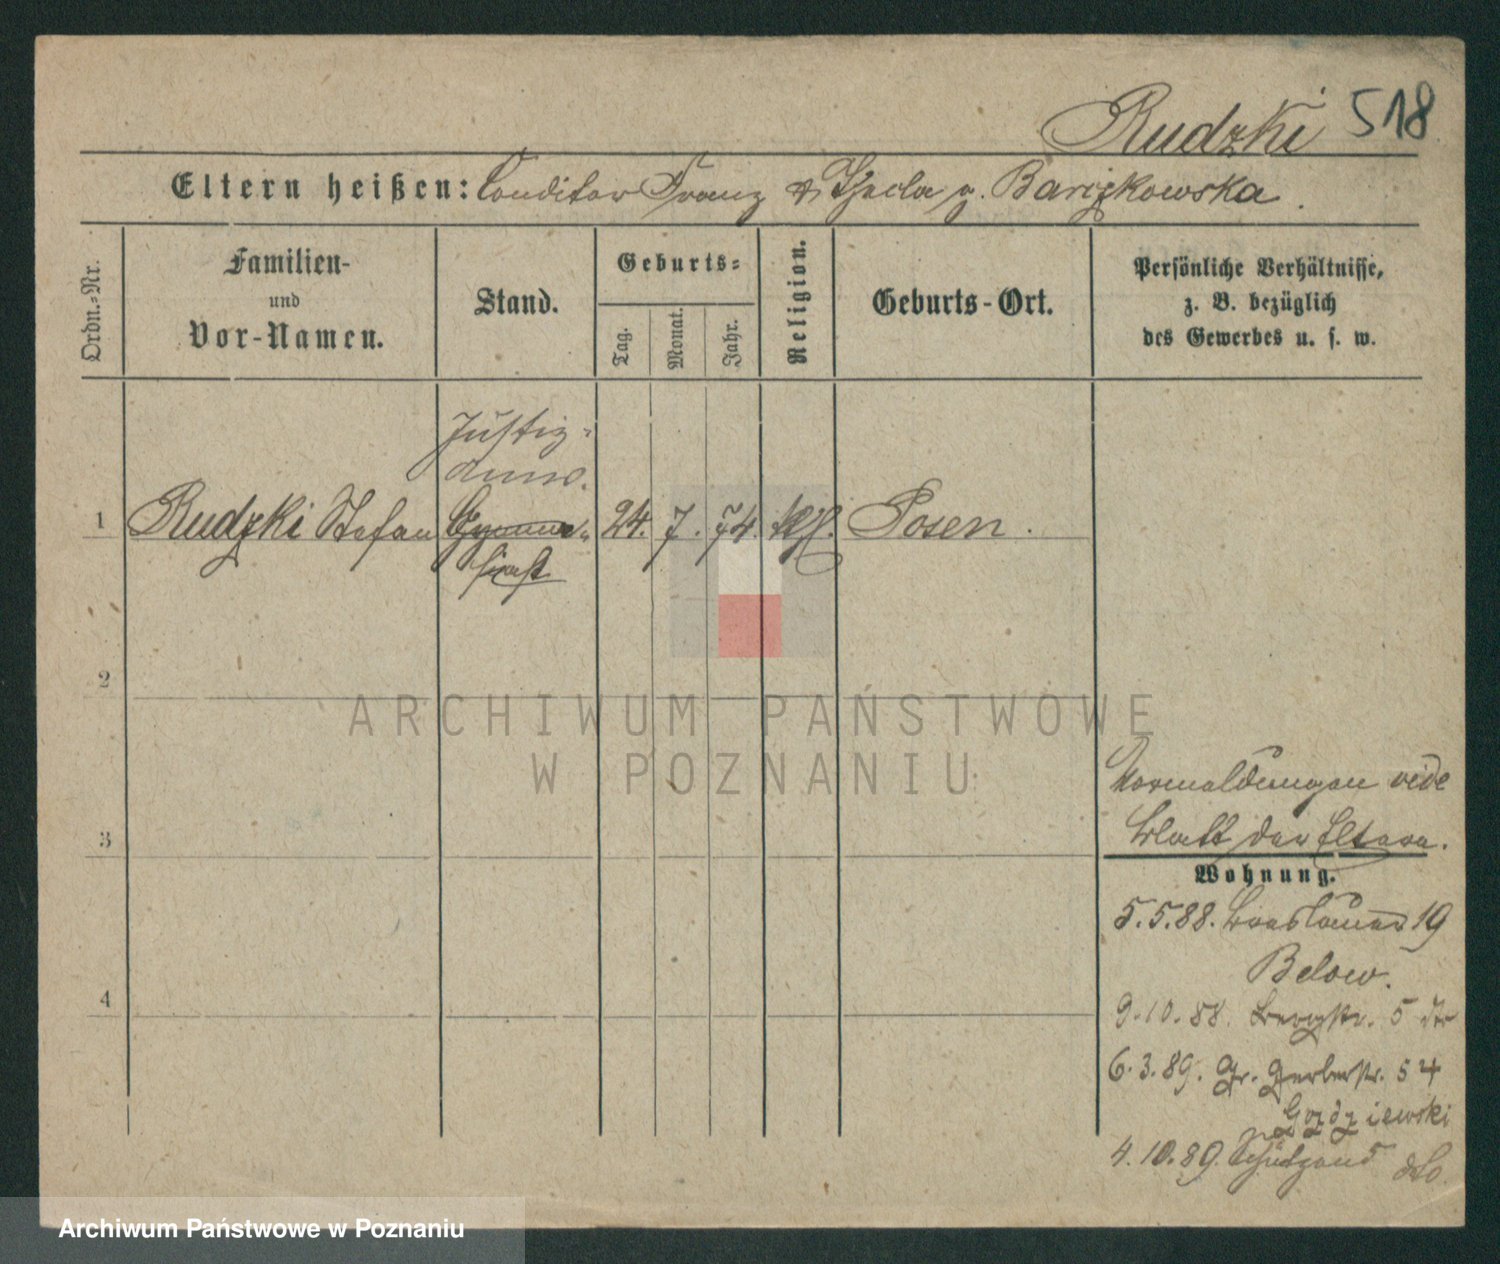 Rudzki 518
Eltern heißen: Conditor Franz & Thecla g. Barczkowska.
Ordn.-Nr.
Familien-
und
Vor-Namen.
Stand.
Geburts-
Tag.
Monat.
Jahr.
Religion.
Geburts-Ort.
Persönliche Verhältnisse,
z. B. bezüglich
des Gewerbes u. s. w.
Justiz-
Anw.
1 Rudzki Stefan Gymna- 24. 7. 74. kth. Posen.
siast
2
ARCHIWUM PAŃSTWOWE
W POZNANIU
3
Vormeldungen vide
Blatt der Eltern.
Wohnung.
5.5.88. 19
Below.
4
9.10.88. Bergstr. 5
6.3.89. Gr. Gerberstr. 54
Gozdziewski
4.10.89. Schützens dto.
Archiwum Państwowe w Poznaniu